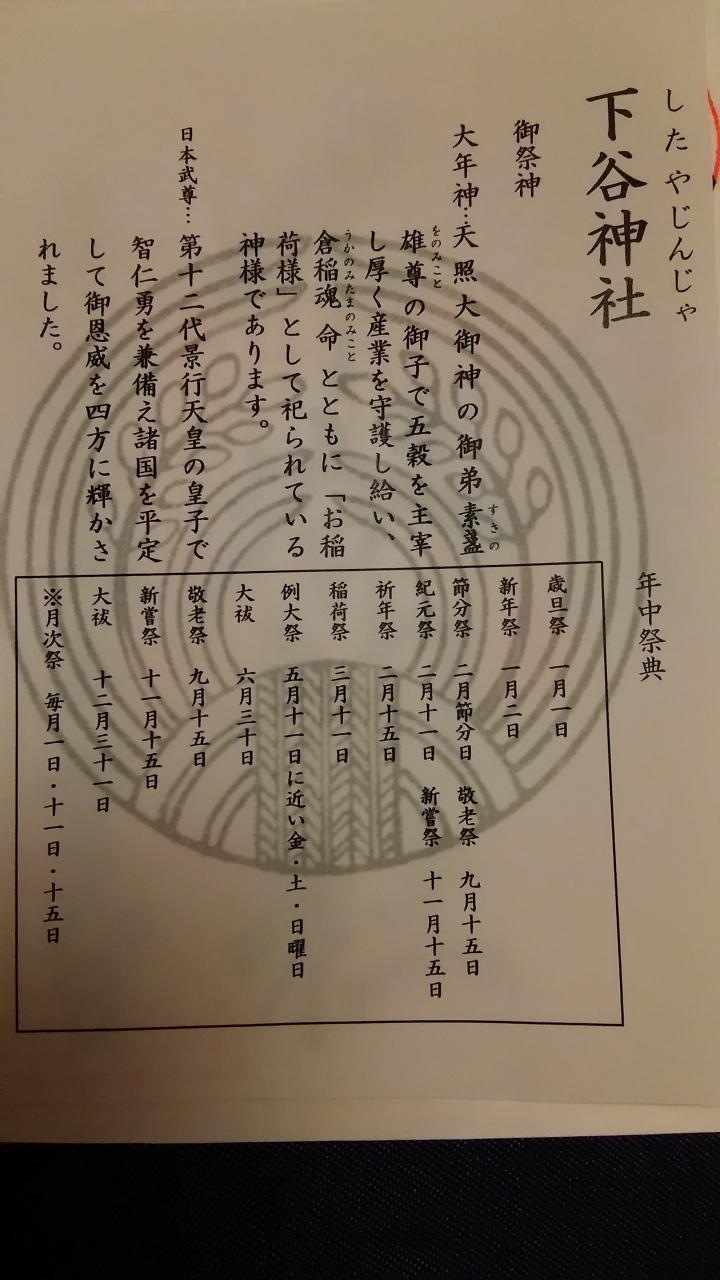 したやじんじゃ
下谷神社
御祭神
大年神…天照大御神の御弟素盞
すさの
をのみこと
雄尊の御子で五穀を主宰
し厚く産業を守護し給い、
うかのみたまのみこと
倉稲魂命とともに「お稲
荷様」として祀られている
神様であります。
日本武尊…第十二代景行天皇の皇子で
智仁勇を兼備え諸国を平定
して御恩威を四方に輝かさ
れました。
年中祭典
歳旦祭 一月一日
新年祭 一月二日
節分祭 二月節分日 敬老祭 九月十五日
紀元祭 二月十一日 新嘗祭 十一月十五日
祈年祭 二月十五日
稲荷祭 三月十一日
例大祭 五月十一日に近い金・土・日曜日
大祓 六月三十日
敬老祭 九月十五日
新嘗祭 十一月十五日
大祓 十二月三十一日
※月次祭 毎月一日・十一日・十五日